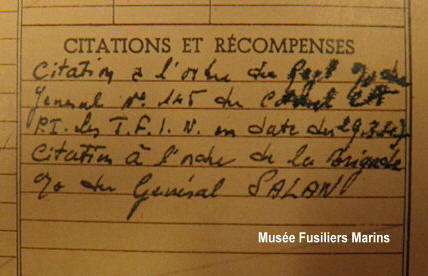 CITATIONS ET RÉCOMPENSES
Citation à l'ordre du Regt
General N° 145 du
P.I. les T.F.I.N. en date du
Citation à l'ordre de la Brigade
du General SALAN
Musée Fusiliers Marins